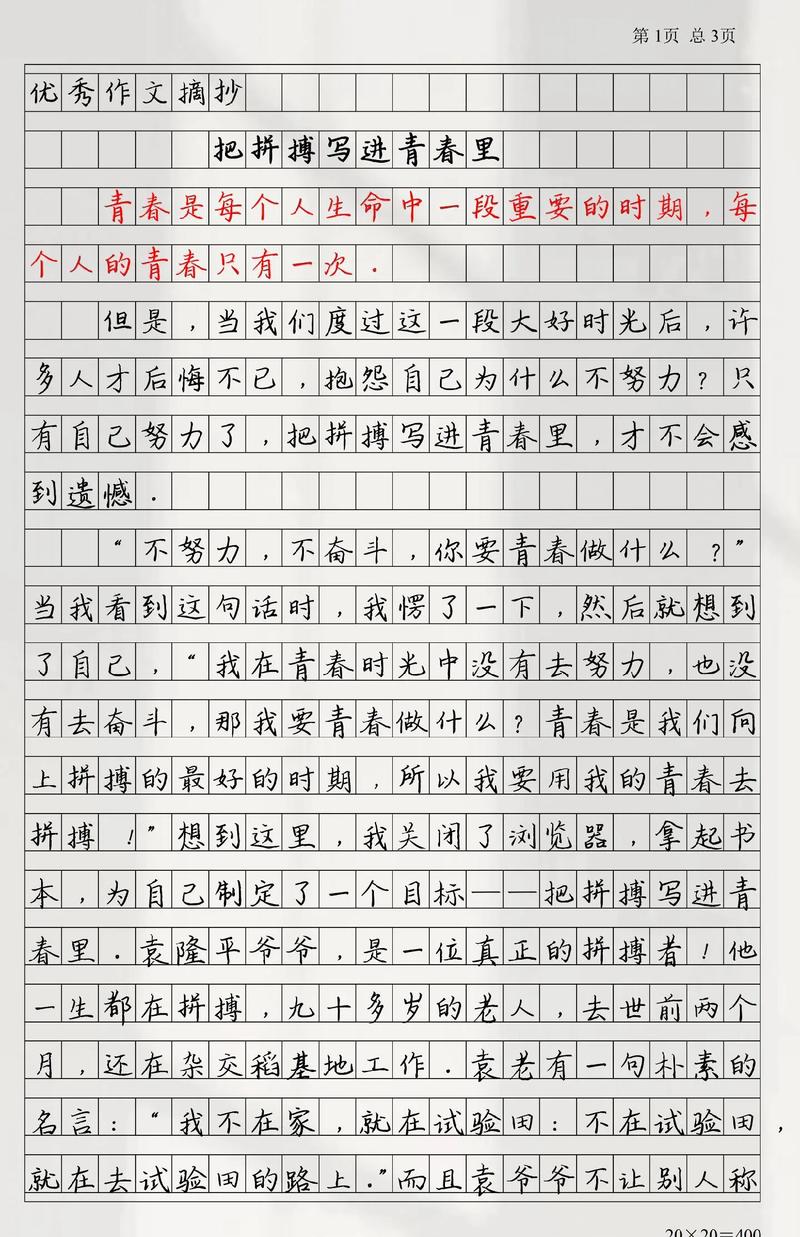 第1页 总3页
优秀作文摘抄
把拼搏写进青春里
青春是每个人生命中一段重要的时期，每
个人的青春只有一次．
但是，当我们度过这一段大好时光后，许
多人才后悔不已，抱怨自己为什么不努力？只
有自己努力了，把拼搏写进青春里，才不会感
到遗憾．
“不努力，不奋斗，你要青春做什么？”
当我看到这句话时，我愣了一下，然后就想到
了自己，“我在青春时光中没有去努力，也没
有去奋斗，那我要青春做什么？青春是我们向
上拼搏的最好的时期，所以我要用我的青春去
拼搏！”想到这里，我关闭了浏览器，拿起书
本，为自己制定了一个目标——把拼搏写进青
春里．袁隆平爷爷，是一位真正的拼搏者！他
一生都在拼搏，九十多岁的老人，去世前两个
月，还在杂交稻基地工作．袁老有一句朴素的
名言：“我不在家，就在试验田：不在试验田，
就在去试验田的路上．”而且袁爷爷不让别人称
20×20=400